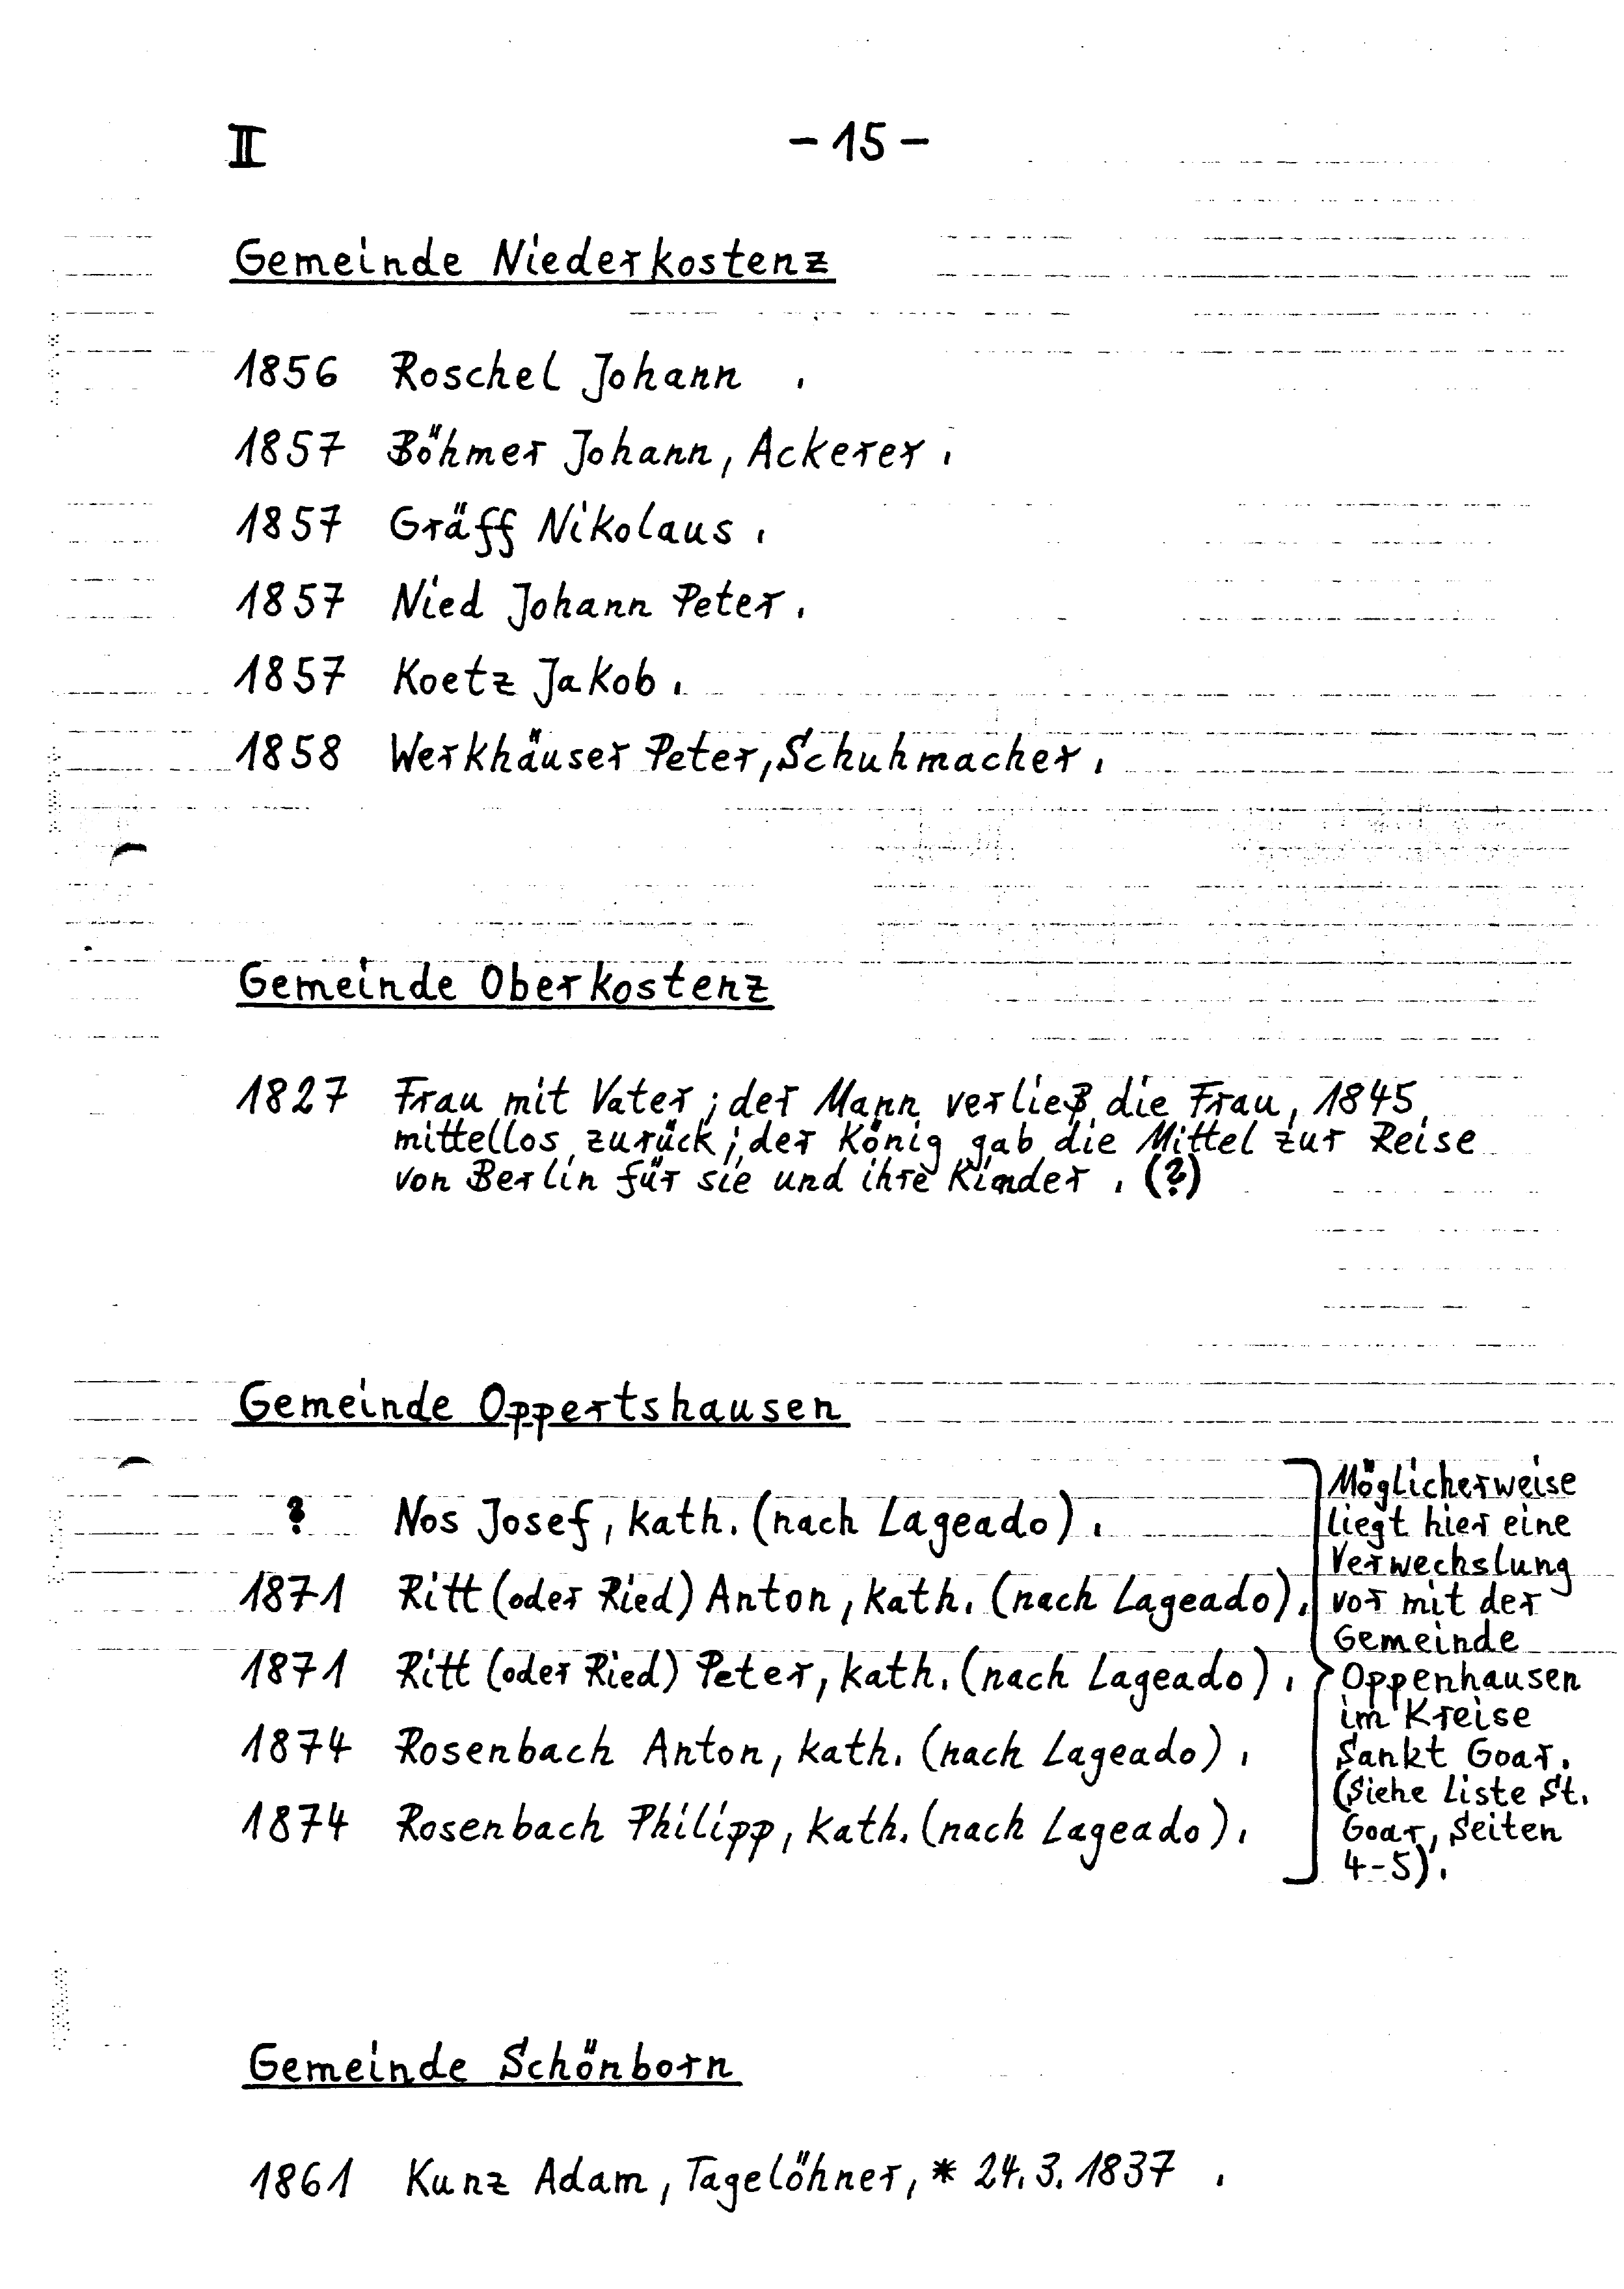 II
- 15 -
Gemeinde Niederkostenz
1856 Roschel Johann .
1857 Böhmer Johann, Ackerer .
1857 Gräff Nikolaus .
1857 Nied Johann Peter .
1857 Koetz Jakob .
1858 Werkhäuser Peter, Schuhmacher .
Gemeinde Oberkostenz
1827 Frau mit Vater ; der Mann verließ die Frau, 1845
mittellos zurück ; der König gab die Mittel zur Reise
von Berlin für sie und ihre Kinder . (?)
Gemeinde Oppertshausen
? Nos Josef, kath. (nach Lageado) .
1871 Ritt (oder Ried) Anton, kath. (nach Lageado) .
1871 Ritt (oder Ried) Peter, kath. (nach Lageado) .
1874 Rosenbach Anton, kath. (nach Lageado) .
1874 Rosenbach Philipp, kath. (nach Lageado) .
Möglicherweise
liegt hier eine
Verwechslung
vor mit der
Gemeinde
Oppenhausen
im Kreise
Sankt Goar.
(Siehe Liste St.
Goar, Seiten
4-5) .
Gemeinde Schönborn
1861 Kunz Adam, Tagelöhner, * 24.3.1837 .